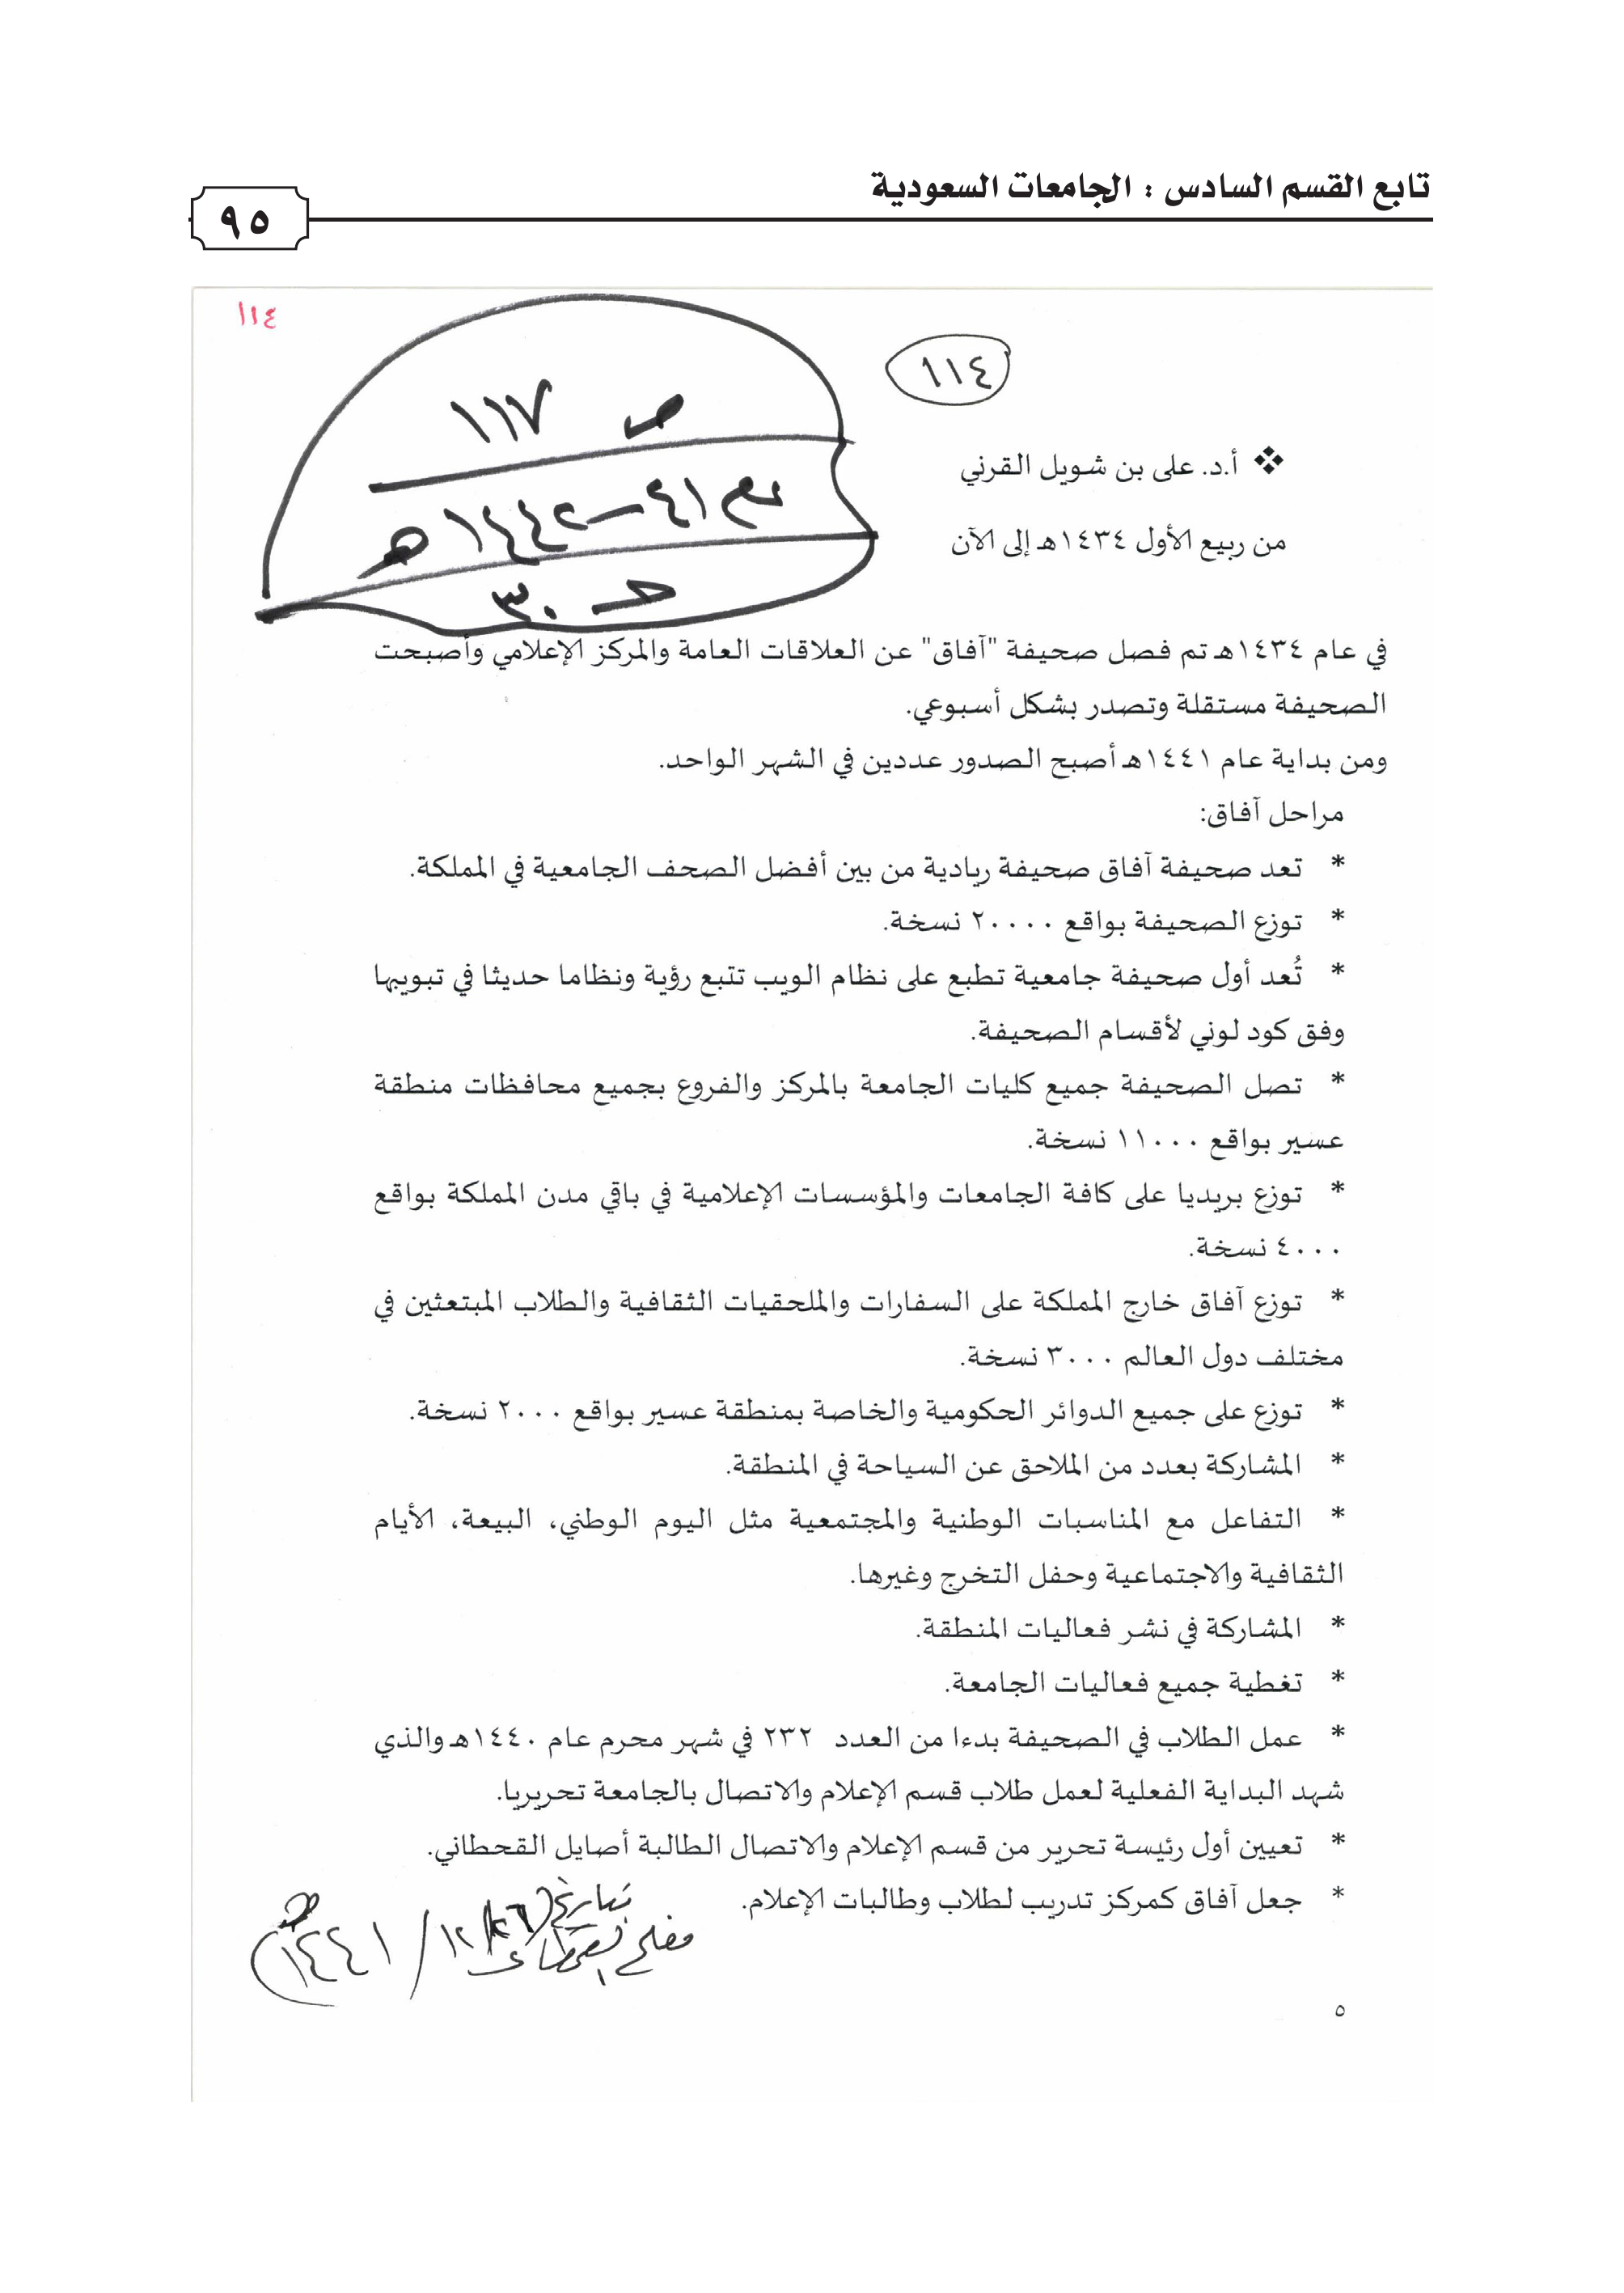 تابع القسم السادس : الجامعات السعودية
٩٥
١١٤
١١٤
ص ١١٧
٤١–١٤٤٢هـ
حـ ٣٠
أ.د. على بن شويل القرني
من ربيع الأول ١٤٣٤هـ إلى الآن
في عام ١٤٣٤هـ تم فصل صحيفة "آفاق" عن العلاقات العامة والمركز الإعلامي وأصبحت
الصحيفة مستقلة وتصدر بشكل أسبوعي.
ومن بداية عام ١٤٤١هـ أصبح الصدور عددين في الشهر الواحد.
مراحل آفاق:
* تعد صحيفة آفاق صحيفة ريادية من بين أفضل الصحف الجامعية في المملكة.
* توزع الصحيفة بواقع ٢٠٠٠٠ نسخة.
* تُعد أول صحيفة جامعية تطبع على نظام الويب تتبع رؤية ونظاما حديثا في تبويبها
وفق كود لوني لأقسام الصحيفة.
* تصل الصحيفة جميع كليات الجامعة بالمركز والفروع بجميع محافظات منطقة
عسير بواقع ١١٠٠٠ نسخة.
* توزع بريديا على كافة الجامعات والمؤسسات الإعلامية في باقي مدن المملكة بواقع
٤٠٠٠ نسخة.
* توزع آفاق خارج المملكة على السفارات والملحقيات الثقافية والطلاب المبتعثين في
مختلف دول العالم ٣٠٠٠ نسخة.
* توزع على جميع الدوائر الحكومية والخاصة بمنطقة عسير بواقع ٢٠٠٠ نسخة.
* المشاركة بعدد من الملاحق عن السياحة في المنطقة.
* التفاعل مع المناسبات الوطنية والمجتمعية مثل اليوم الوطني، البيعة، الأيام
الثقافية والاجتماعية وحفل التخرج وغيرها.
* المشاركة في نشر فعاليات المنطقة.
* تغطية جميع فعاليات الجامعة.
* عمل الطلاب في الصحيفة بدءا من العدد ٢٣٢ في شهر محرم عام ١٤٤٠هـ والذي
شهد البداية الفعلية لعمل طلاب قسم الإعلام والاتصال بالجامعة تحريريا.
* تعيين أول رئيسة تحرير من قسم الإعلام والاتصال الطالبة أصايل القحطاني.
* جعل آفاق كمركز تدريب لطلاب وطالبات الإعلام.
مفلح القحطاني
بتاريخ (٢٦/١٢/١٤٤١هـ)
٥